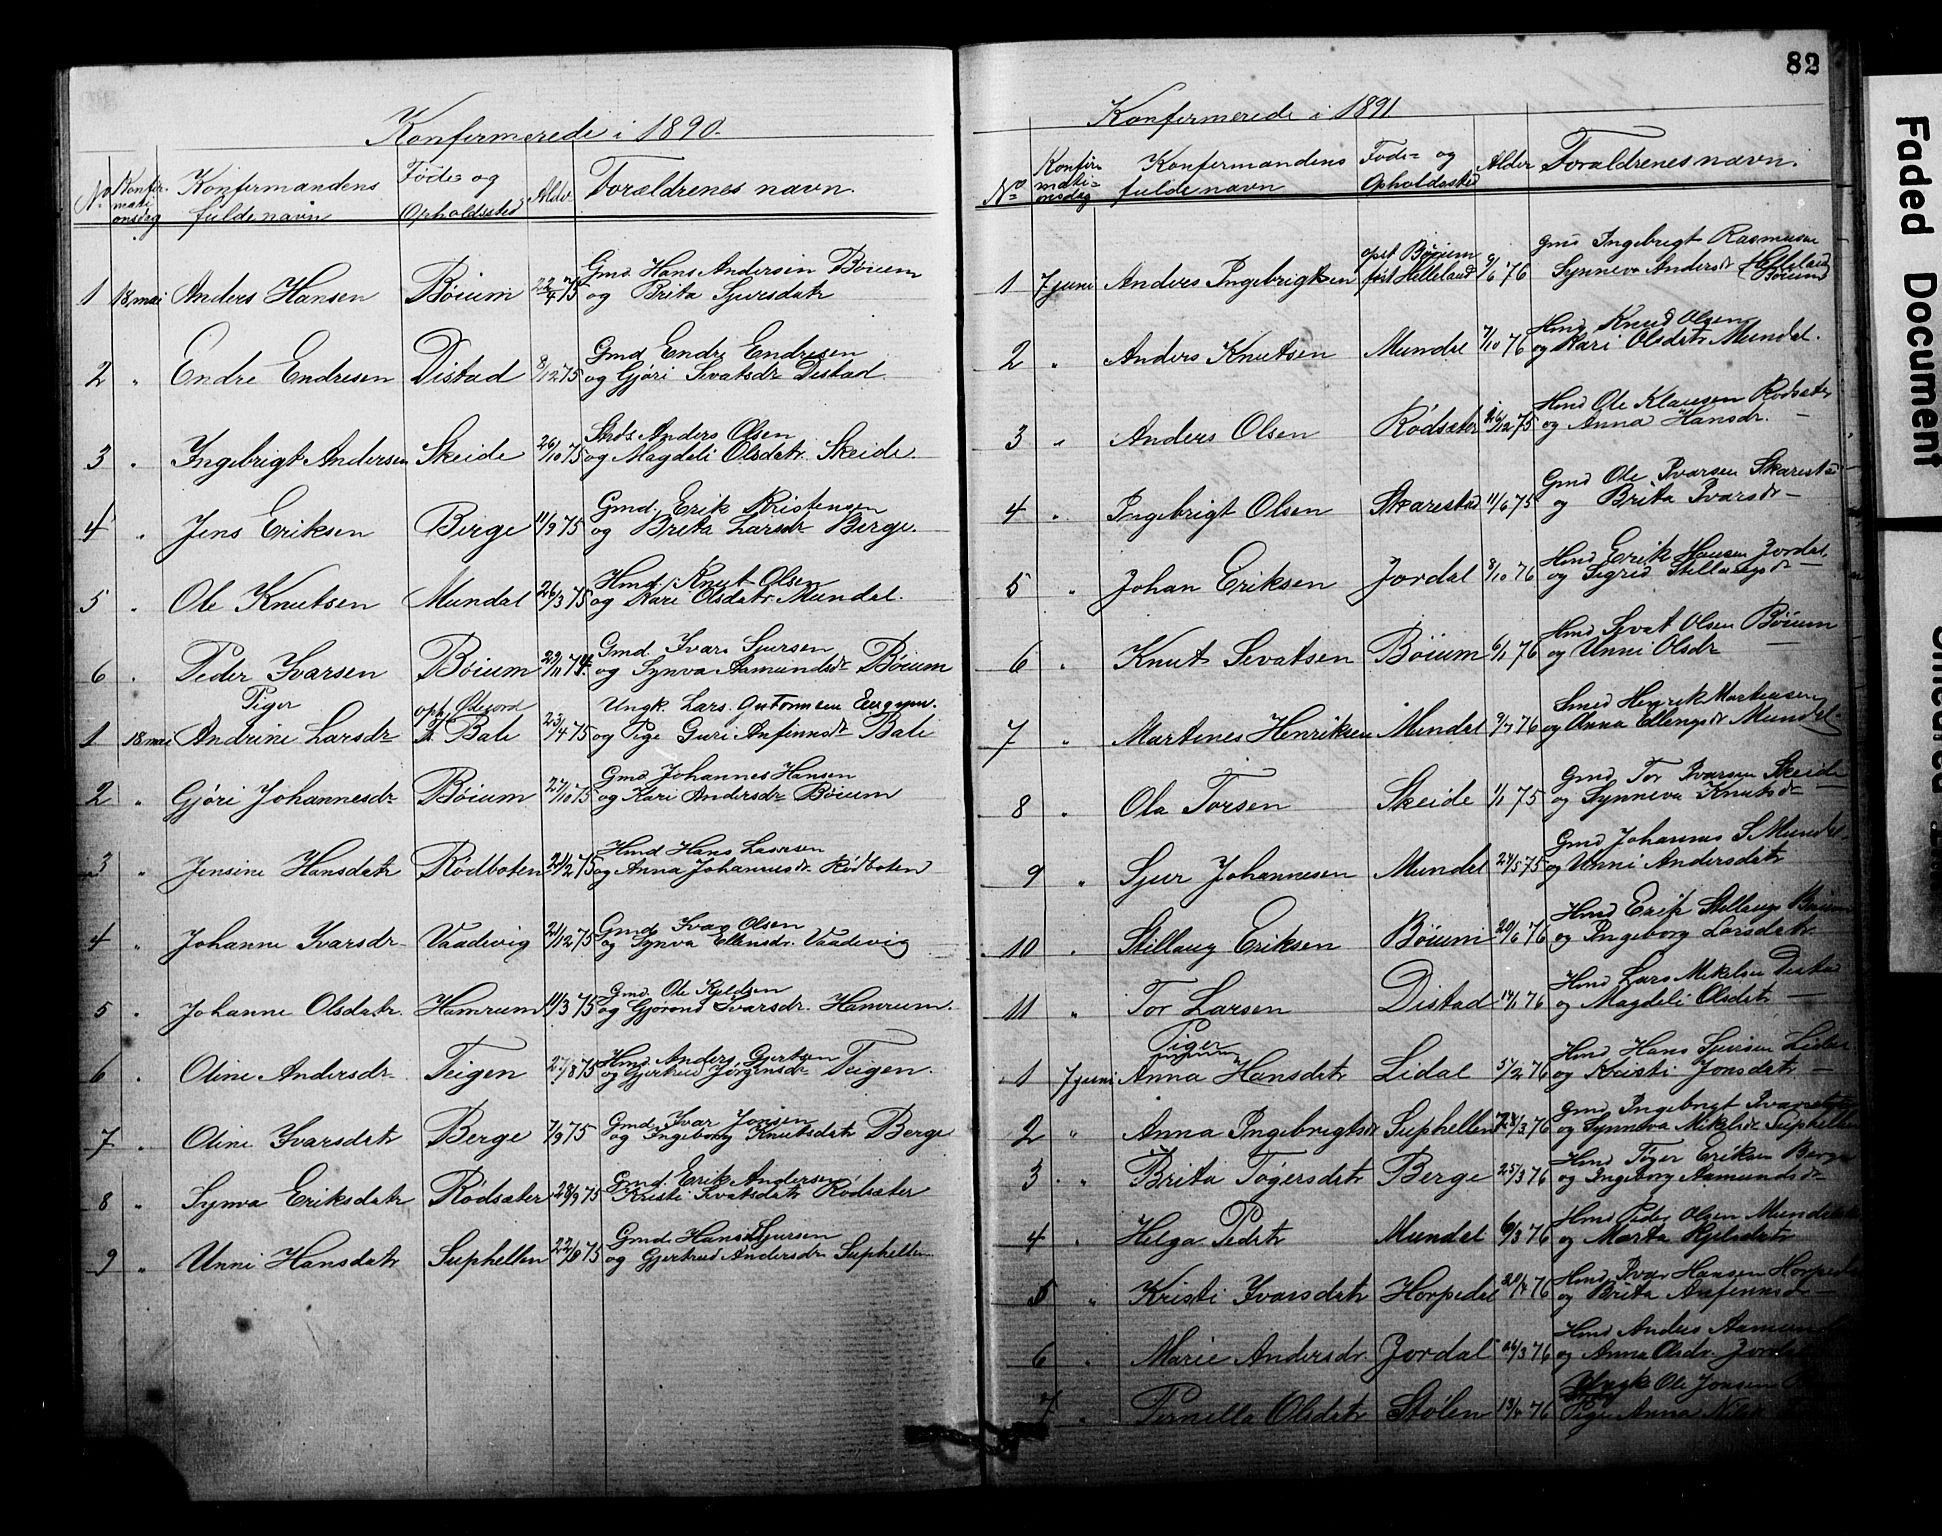 Konfermerede i 1890.
No Konfermationsdag Konfermandens fulde navn Føde- og Opholdssted Alder Forældrenes navn.
1 18 mai Anders Hansen Bøium 22/4 75 Gmd Hans Andersen Bøium
og Brita Sjursdatr
2 " Endre Endresen Distad 8/12 75 Gmd Endre Endresen
og Gjøri Sevatsdr Distad
3 " Ingebrigt Andersen Skeide 26/10 75 Anders Olsen
og Magdeli Olsdatr Skeide
4 " Jens Eriksen Berge 11/9 75 Gmd. Erik Kristensen
og Brita Larsdr Berge.
5 " Ole Knutsen Mundal 26/3 75 Hmd. Knut Olsen
og Kari Olsdatr Mundal.
6 " Peder Ivarsen Bøium 22/11 74 Gmd Ivar Sjursen
og Synva Aamundsdr Bøium
Piger
1 18 mai Andrine Larsdr Bale 23/4 75 Ungk. Lars
og Pige Guri Anfinnsdr Bale
2 " Gjøri Johannesdr Bøium 27/10 75 Gmd Johannes Hansen
og Kari Andersdr Bøium
3 " Jensine Hansdatr Rødboten 21/2 75 Hmd Hans Lassesen
og Anna Johannesdr Rødboten
4 " Johanne Ivarsdr Vaadevig 21/12 75 Gmd Ivar Olsen
og Synva Ellensdr. Vaadevig
5 " Johanne Olsdatr. Hamrum 11/3 75 Gmd. Ole Kjeldsen
og Gjørond Ivarsdr. Hamrum.
6 " Oline Andersdr Teigen 27/8 75 Hmd Anders Gjertsen
og Gjertrud Jørgensdr Teigen.
7 " Oline Ivarsdatr Berge 7/9 75 Gmd. Ivar Jonsen
og Ingeborg Knutsdatr Berge
8 " Synva Eriksdatr Rødsæter 28/9 75 Gmd. Erik Andersen
Kristi Sevatsdatr Rødsæter
9 " Unni Hansdatr Suphellen 75 Gmd Hans Sjursen
og Gjertrud Andersdr Suphellen
82
Konfermerede i 1891
No Konfirmationsdag Konfermandens fulde navn Føde- og Opholdssted Alder Foraldrenes navn.
1 7 juni Anders Ingebrigtsen opst Bøium født Helleland 9/6 76 Gmd Ingebrigt Rasmusen
Synneva Andersdr Helleland Bøium
2 " Anders Knutsen Mundal 7/10 76 Hmd Knud Olsen
og Kari Olsdatr Mundal.
3 " Anders Olsen Rødsæter 26/12 75 Hmd Ole Klausen Rødsæter
og Anna Hansdr. —
4 " Ingebrigt Olsen Skarestad 11/6 75 Gmd Ole Ivarsen Skarestad
og Brita Ivarsdr —
5 " Johan Eriksen Jordal 8/10 76 Hmd Erik Hansen Jordal
og Sigrid Stillaugsdr —
6 " Knut Sevatsen Bøium 6/1 76 Hmd Sevat Olsen Bøium
og Unni Olsdr —
7 " Martenes Henriksen Mundal 9/7 76 Henrik Martensen
og Anna Ellengsdr Mundal.
8 " Ola Torsen Skeide 1/1 75 Gmd Tor Ivarsen Skeide
og Synneva Knutsdr —
9 " Sjur Johannesen Mundal 24/5 75 Gmd Johannes S Mundal
og Unni Andersdatr
10 " Stillaug Eriksen Bøium 20/6 76 Hmd Erik Stillaugs Bøium
og Ingeborg Larsdatr
11 " Tor Larsen Distad 14/1 76 Hmd Lars Mikelsen Distad
og Magdeli Olsdatr —
Piger
1 7 juni Anna Hansdatr Lidal 5/2 76 Hmd Hans Sjursen Lidal
og Kristi Jonsdatr —
2 " Anna Ingebrigtsdr Suphellen 24/3 76 Gmd Ingebrigt
og Synneva Mikelsdr Suphellen
3 " Brita Tøgersdatr Berge 25/3 76 Hmd Tøger Eriksen Berge
og Ingeborg Aamundsdr
4 " Helga Pedatr Mundal 6/3 76 Hmd Peder Olsen Mundal
og Marta
5 " Kristi Ivarsdatr Horpedal 20/4 76 Hmd Ivar Hansen Horpedal
og Brita Anfennsdr
6 " Marie Andersdr. Jordal 26/3 76 Hmd Anders
og Anna Olsdr. Jordal
7 " Pernella Olsdatr Stølen 13/4 76 Ungk Ole Jonsen
Pige Anna
Faded Document